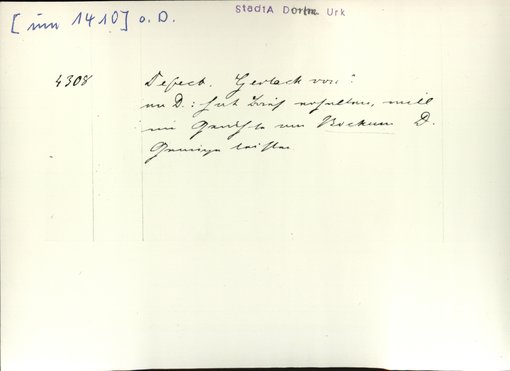 [um 1410] o. D.
StadtA Dortm. Urk
4308
Defect. Gerlach von?
an D.: hat Brief erhalten, will
im Gerichte von Bockum D.
Genüge leisten